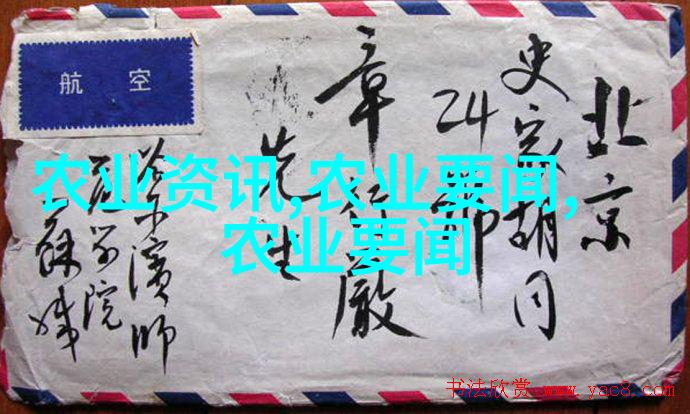 航 空
北京
史家胡同
24
章行嚴
先生
哈尔濱師
学院
农业资讯,农业要闻,
农业要闻
书法欣赏 www.yac8.com